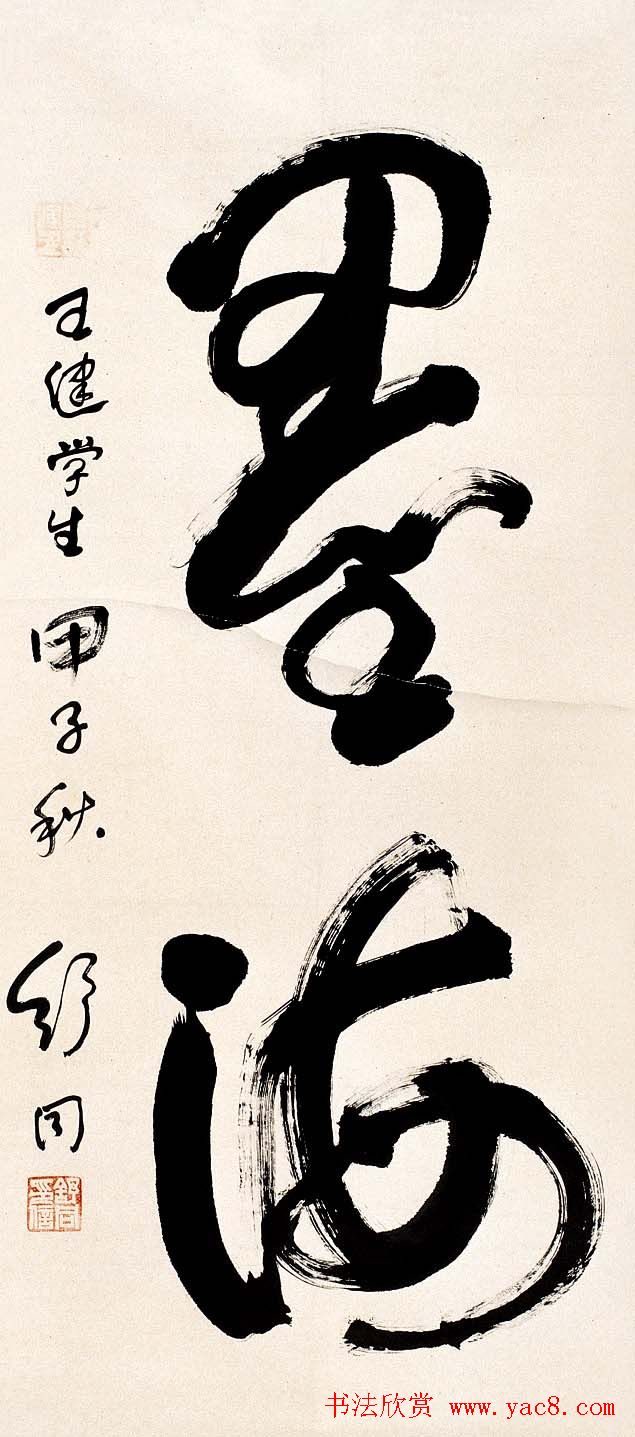 墨海
王健学生 甲子秋. 舒同
舒同之信
书法欣赏 www.yac8.com